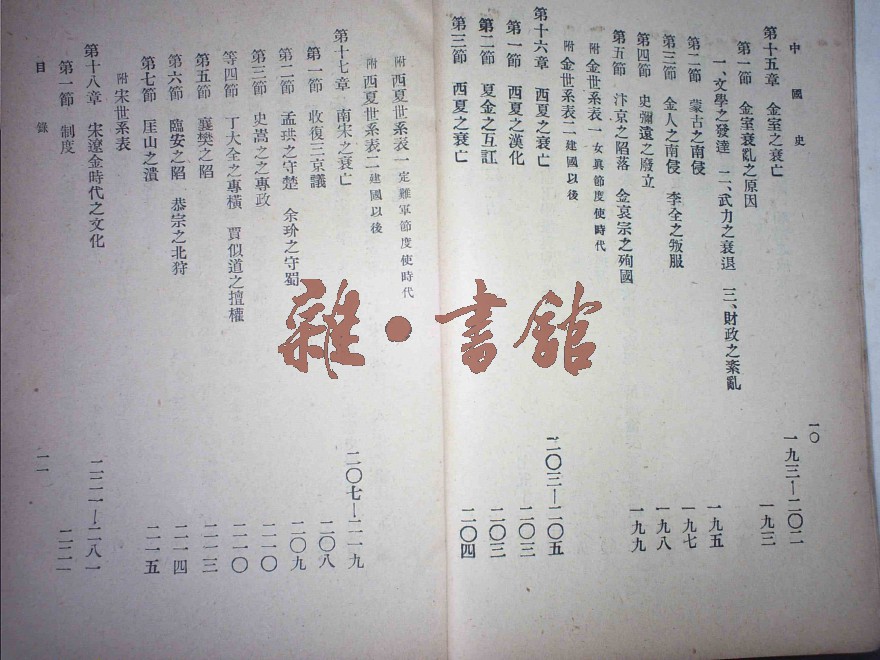 中國史
一〇
第十五章 金室之衰亡 一九三—二〇二
第一節 金室衰亂之原因 一九三
一、文學之發達 二、武力之衰退 三、財政之紊亂
第二節 蒙古之南侵 一九五
第三節 金人之南侵 李全之叛服 一九七
第四節 史彌遠之廢立 一九八
第五節 汴京之陷落 金哀宗之殉國 一九九
附 金世系表一 女眞節度使時代
附 金世系表二 建國以後
第十六章 西夏之衰亡 二〇三—二〇五
第一節 西夏之漢化 二〇三
第二節 夏金之互訌 二〇三
第三節 西夏之衰亡 二〇四
附 西夏世系表一 定難軍節度使時代
附 西夏世系表二 建國以後
第十七章 南宋之衰亡 二〇七—二一九
第一節 收復三京議 二〇八
第二節 孟珙之守楚 余玠之守蜀 二〇九
第三節 史嵩之之專政 二一〇
等四節 丁大全之專橫 賈似道之擅權 二一〇
第五節 襄樊之陷 二一三
第六節 臨安之陷 恭宗之北狩 二一四
第七節 厓山之潰 二一五
附 宋世系表
第十八章 宋遼金時代之文化 二二一—二八一
第一節 制度 二二一
目錄
一一
雜·書館